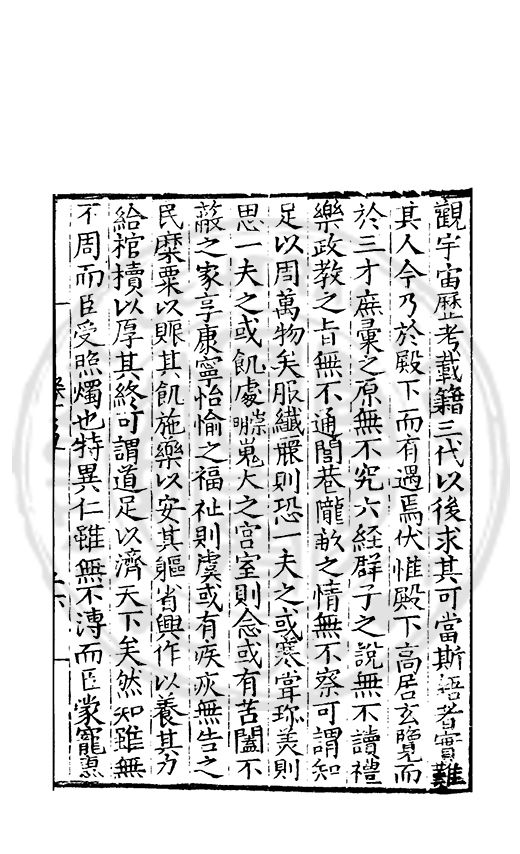 觀宇宙歷考載籍三代以後求其可當斯語者實難
其人今乃於殿下而有遇焉伏惟殿下高居玄覽而
於三才庶彙之原無不究六經群子之說無不讀禮
樂政教之旨無不通閭巷隴畝之情無不察可謂知
足以周萬物矣服纖麗則恐一夫之或寒嘗珍羙則
思一夫之或飢處嵬大之宮室則念或有苫闔不
蔽之家享康寧怡愉之福祉則虞或有疾疢無告之
民糜粟以賑其飢施藥以安其軀省興作以養其力
給棺櫝以厚其終可謂道足以濟天下矣然知雖無
不周而臣受照燭也特異仁雖無不溥而臣蒙寵惠